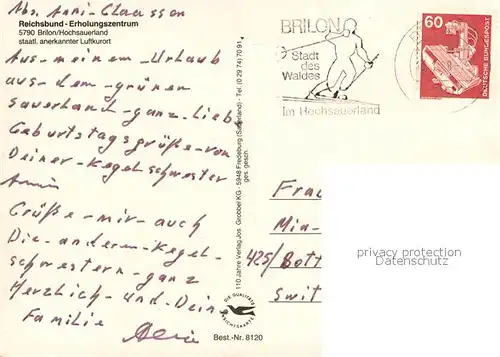 Abs. Anni-Claassen
Reichsbund - Erholungszentrum
5790 Brilon/Hochsauerland
staatl. anerkannter Luftkurort
Aus-meinem-Urlaub
aus-dem-grünen
Sauerland-ganz-Lieb
Geburtstagsgrüße-von
Deiner-Kegelschwester
Anni
Grüße-mir-auch
Die-anderen-Kegel-
schwestern-ganz
Herzlich-und-Deine
Familie
110 Jahre Verlag Jos. Grobbel KG - 5948 Fredeburg (Sauerland) - Tel. (0 29 74) 70 91
ges. gesch.
DIE QUALITÄTS
ANSICHTSKARTE
Best.-Nr. 8120
BRILON
Stadt
des
Waldes
im Hochsauerland
60
DEUTSCHE BUNDESPOST
Frau
425/Bott
privacy protection
Datenschutz